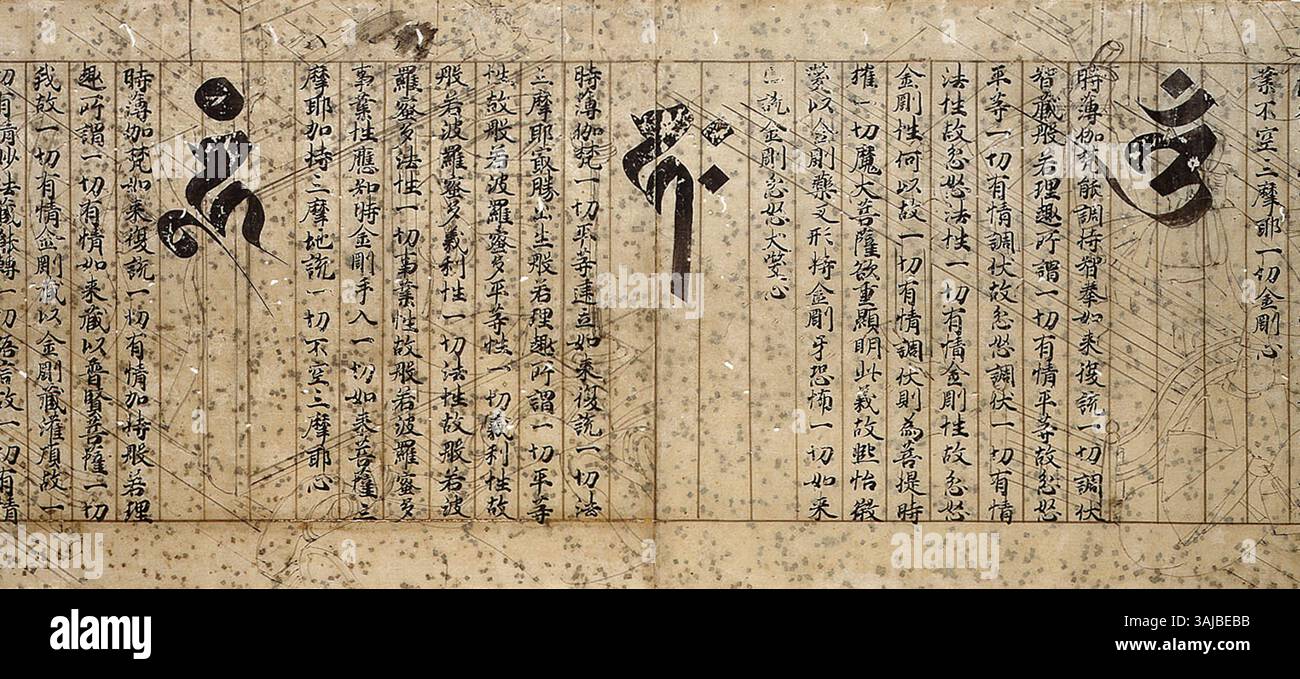 業不空三摩耶一切金剛心
時薄伽梵能調持智拳如來復説一切調伏
智藏般若理趣所謂一切有情平等故忿怒
平等一切有情調伏故忿怒調伏一切有情
法性故忿怒法性一切有情金剛性故忿怒
金剛性何以故一切有情調伏則為菩提時
摧一切魔大菩薩欲重顯明此義故熙怡微
咲以金剛藥叉形持金剛牙恐怖一切如來
已説金剛忿怒大咲心
時薄伽梵一切平等建立如来復説一切法
三摩耶最勝出生般若理趣所謂一切平等
性故般若波羅蜜多平等性一切義利性故
般若波羅蜜多義利性一切法性故般若波
羅蜜多法性一切事業性故般若波羅蜜多
事業性應知時金剛手入一切如来菩薩三
摩耶加持三摩地説一切不空三摩耶心
時薄伽梵如來復説一切有情加持般若理
趣所謂一切有情如来藏以普賢菩薩一切
我故一切有情金剛藏以金剛藏灌頂故一
切有情妙法藏能轉一切語言故一切有情
alamy
Image ID: 3AJBEBB
www.alamy.com